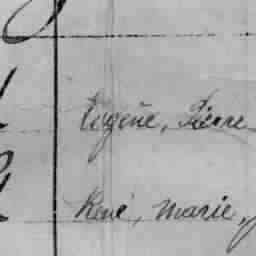 Eugène, Pierre
René, Marie,